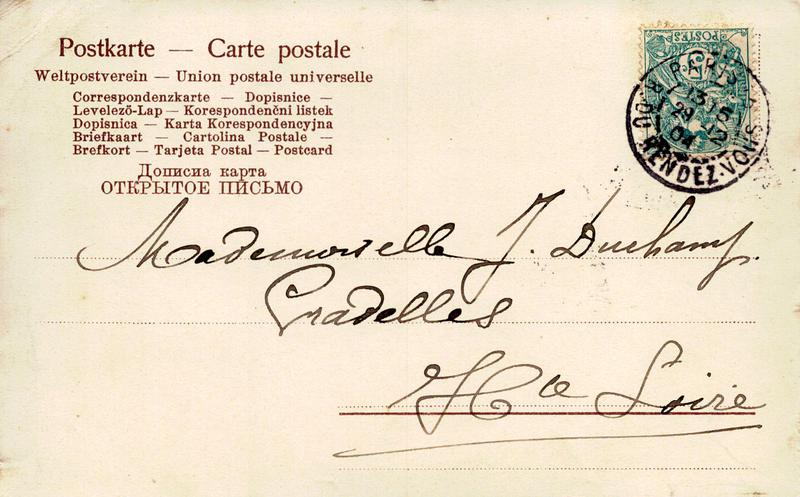 Postkarte — Carte postale
Weltpostverein — Union postale universelle
Correspondenzkarte — Dopisnice —
Levelező-Lap — Korespondenční listek
Dopisnica — Karta Korespondencyjna
Briefkaart — Cartolina Postale —
Brefkort — Tarjeta Postal — Postcard
Дописна карта
ОТКРЫТОЕ ПИСЬМО
POSTES
5
PARIS
R. DU RENDEZ-VOUS
29 12
04
Mademoiselle J. Duchamp.
Pradelles
Hte Loire